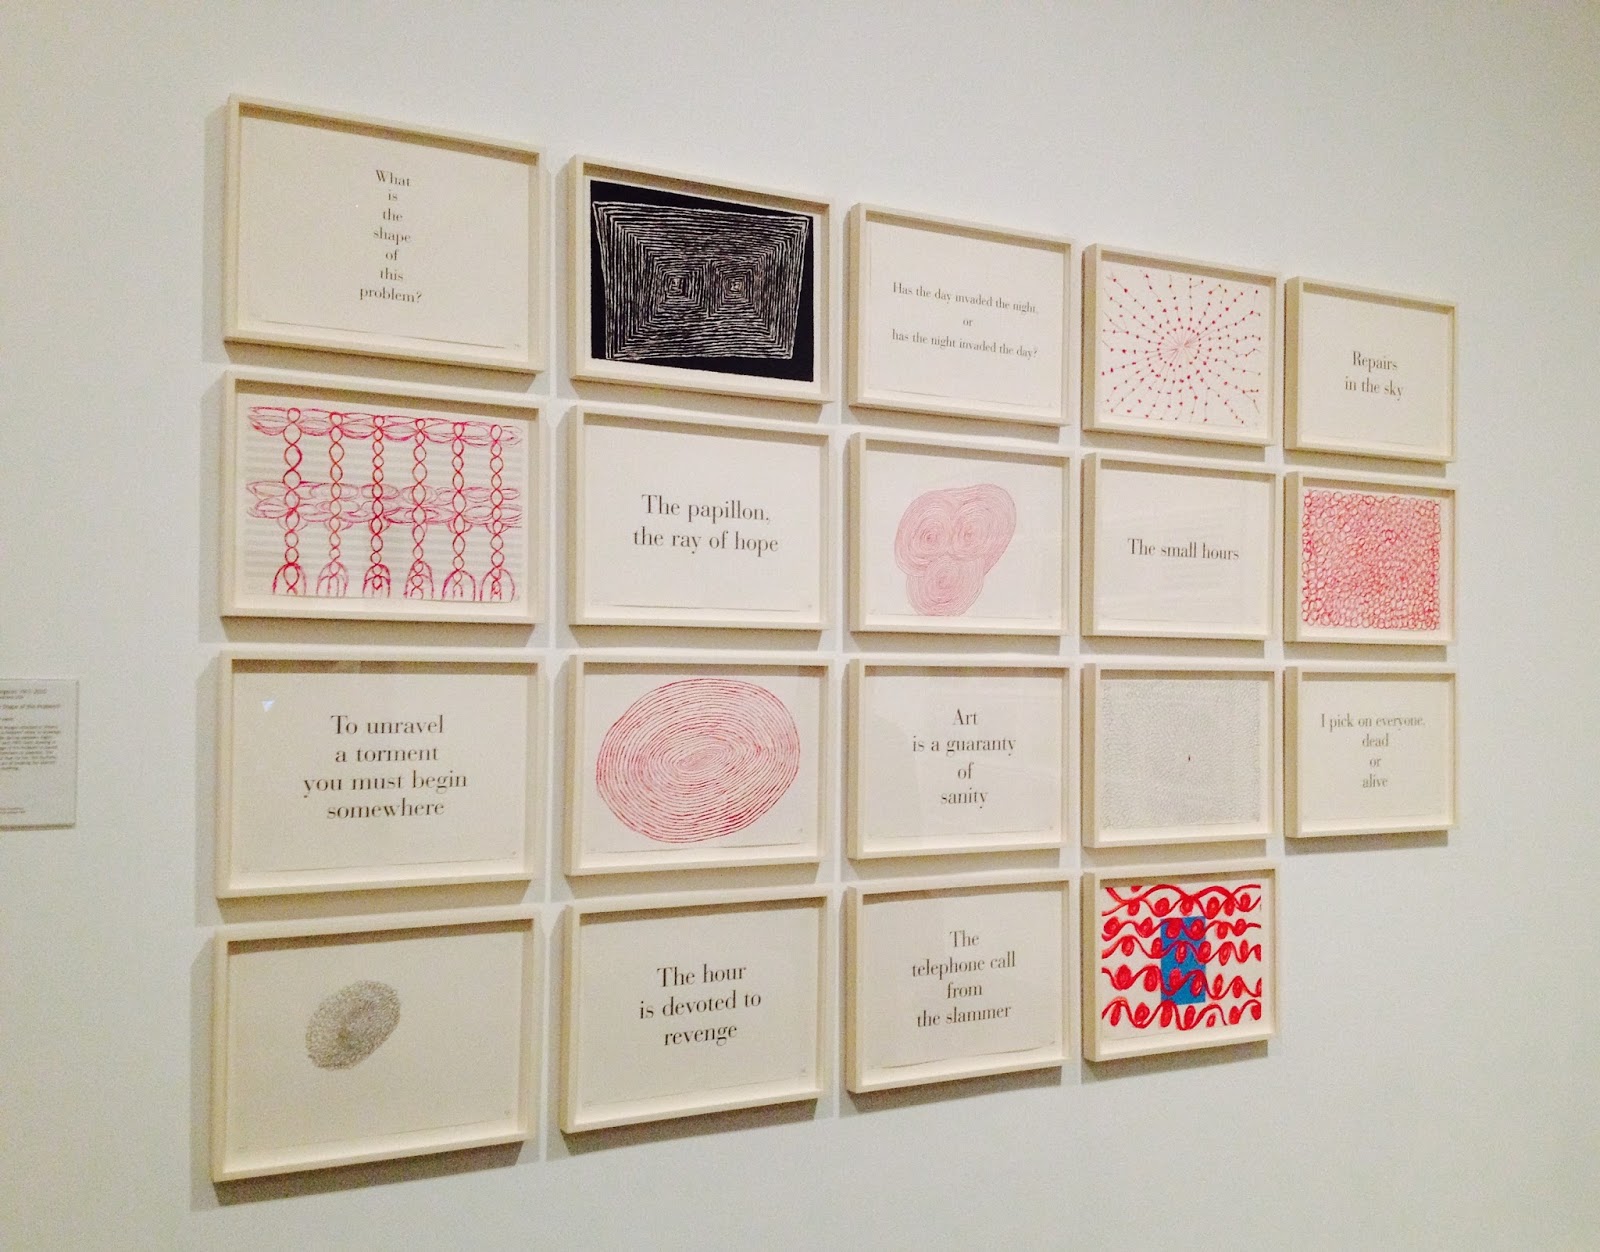 What
is
the
shape
of
this
problem?
Has the day invaded the night,
or
has the night invaded the day?
Repairs
in the sky
The papillon,
the ray of hope
The small hours
To unravel
a torment
you must begin
somewhere
Art
is a guaranty
of
sanity
I pick on everyone,
dead
or
alive
The hour
is devoted to
revenge
The
telephone call
from
the slammer